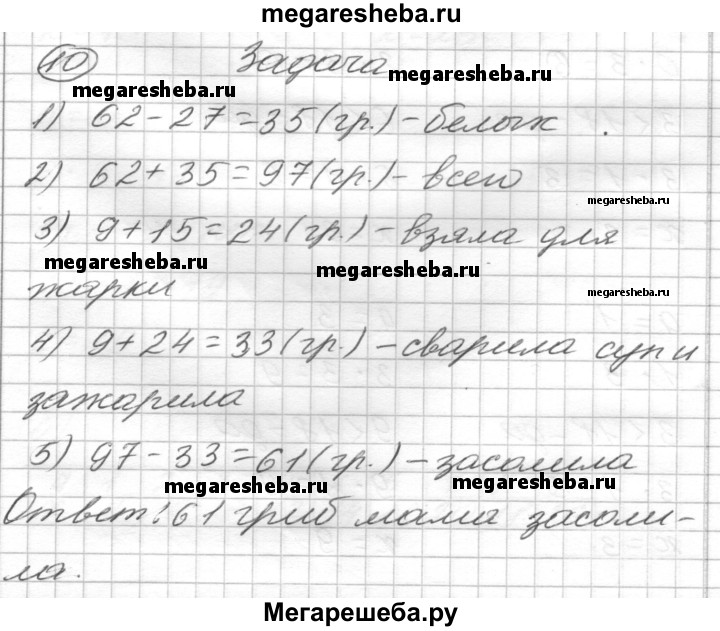 megaresheba.ru
10 Задача
megaresheba.ru
megaresheba.ru
1) 62 - 27 = 35 (гр.) - белых
2) 62 + 35 = 97 (гр.) - всего
megaresheba.ru
3) 9 + 15 = 24 (гр.) - взяла для
megaresheba.ru
megaresheba.ru
жарки
megaresheba.ru
4) 9 + 24 = 33 (гр.) - сварила суп и
зажарила
5) 97 - 33 = 61 (гр.) - засолила
megaresheba.ru
megaresheba.ru
Ответ: 61 гриб мама засоли-
ла.
Мегарешеба.ру